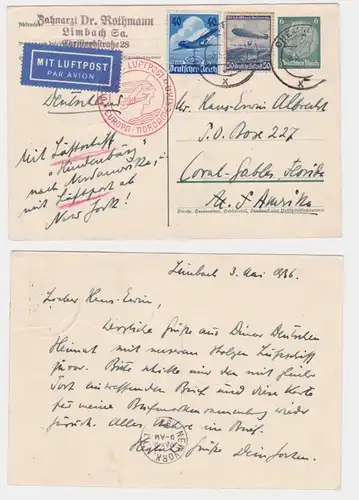 Zahnarzt Dr. Rothmann
Limbach Sa.
MIT LUFTPOST
PAR AVION
Deutschland
40 40
Deutsches Reich
50 50
6 6
Deutsches Reich
LUFTPOST
EUROPA-NORDAMERIKA
Herrn Hans-Erwin Albrecht
P.O. Box 227
Coral-Gables Florida
U. S. Amerika
Mit Luftschiff
"Hindenburg"
nach Nordamerika
mit Luftpost ab
New York!
Straße, Hausnummer, Gebäudeteil, Stockwerk oder Postschließfachnummer
Limbach 3. Mai 1936.
Lieber Hans-Erwin,
Herzliche Grüße aus Deiner Deutschen
Heimat mit unserem stolzen Luftschiff
zuvor. Bitte schicke mir den mit gleicher
Post eintreffenden Brief und diese Karte
für meine Briefmarkensammlung wieder
zurück. Alles Nähere im Brief.
Herzliche Grüße Dein
NEW YORK
9-AM